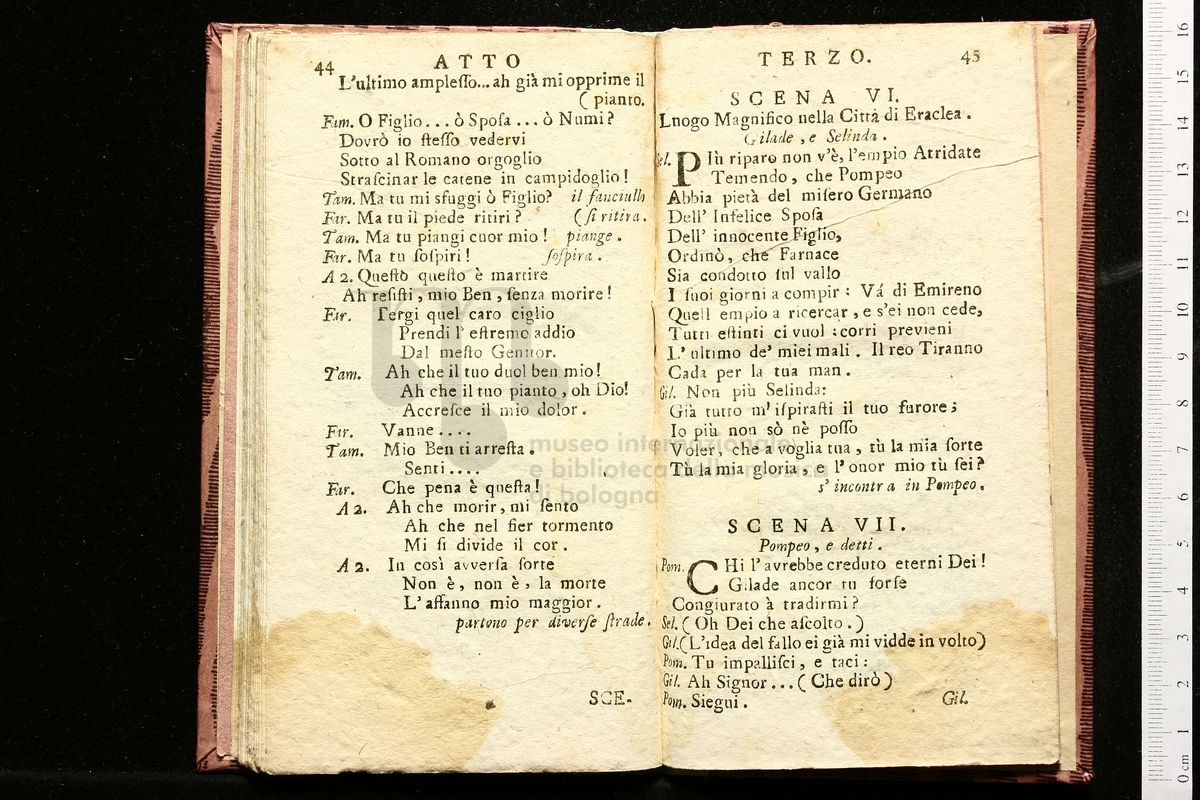 44 ATTO
L'ultimo ampleſſo... ah già mi opprime il
( pianto.
Far. O Figlio... ò Spoſa ... ò Numi?
Dovrò io ſteſſo vedervi
Sotto al Romano orgoglio
Straſcinar le catene in campidoglio!
Tam. Ma tu mi sfuggi ò Figlio? il fanciullo
Far. Ma tu il piede ritiri? ( ſi ritira.
Tam. Ma tu piangi cuor mio! piange.
Far. Ma tu ſoſpiri! ſoſpira.
A 2. Queſto queſto è martire
Ah reſiſti, mio Ben, ſenza morire!
Far. Tergi quel caro ciglio
Prendi l' eſtremo addio
Dal meſto Genitor.
Tam. Ah che il tuo duol ben mio!
Ah che il tuo pianto, oh Dio!
Accreſce il mio dolor.
Far. Vanne....
Tam. Mio Ben ti arreſta.
Senti....
Far. Che pena è queſta!
A 2. Ah che morir, mi ſento
Ah che nel fier tormento
Mi ſi divide il cor.
A 2. In così avverſa ſorte
Non è, non è, la morte
L' affanno mio maggior.
partono per diverſe ſtrade.
SCE-
TERZO. 45
SCENA VI.
Lnogo Magnifico nella Città di Eraclea.
Gilade, e Selinda.
Sel. PIù riparo non v'è, l'empio Atridate
Temendo, che Pompeo
Abbia pietà del miſero Germano
Dell' Infelice Spoſa
Dell' innocente Figlio,
Ordinò, che Farnace
Sia condotto ſul vallo
I ſuoi giorni a compir: Vá di Emireno
Quell empio a ricercar, e s'ei non cede,
Tutti eſtinti ci vuol: corri previeni
L' ultimo de' miei mali. Il reo Tiranno
Cada per la tua man.
Gil. Non più Selinda:
Già tutto m' iſpiraſti il tuo furore;
Io più non sò nè poſſo
Voler, che a voglia tua, tù la mia ſorte
Tù la mia gloria, e l' onor mio tù ſei?
s' incontra in Pompeo.
SCENA VII.
Pompeo, e detti.
Pom. CHi l' avrebbe creduto eterni Dei!
Gilade ancor tu forſe
Congiurato à tradirmi?
Sel. ( Oh Dei che aſcolto. )
Gil. (L'idea del fallo ei già mi vidde in volto)
Pom. Tu impalliſci, e taci:
Gil. Ah Signor... ( Che dirò )
Pom. Siegui. Gil.
museo internazionale
e biblioteca della musica
di bologna
0 cm 1 2 3 4 5 6 7 8 9 10 11 12 13 14 15 16